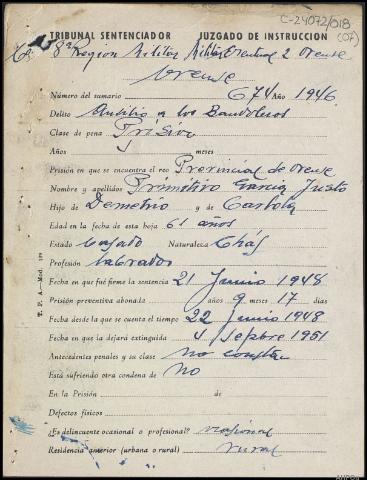 C-24072/018
(07)
TRIBUNAL SENTENCIADOR JUZGADO DE INSTRUCCION
8ª Region Militar Militar Eventual 2 Orense
Orense
Número del sumario 674 Año 1946
Delito Auxilio a los Bandoleros
Clase de pena Prisión
Años meses
Prisión en que se encuentra el reo Provincial de Orense
Nombre y apellidos Primitivo Garcia Justo
Hijo de Demetrio y de Carlota
Edad en la fecha de esta hoja 61 años
Estado Casado Naturaleza
Profesión labrador
Fecha en que fué firme la sentencia 21 Junio 1948
Prisión preventiva abonada años 9 meses 17 días
Fecha desde la que se cuenta el tiempo 22 Junio 1948
Fecha en que la dejará extinguida 4 Sepbre 1951
Antecedentes penales y su clase no consta
Está sufriendo otra condena de No
En la Prisión de
Defectos físicos
¿Es delincuente ocasional o profesional?
Residencia anterior (urbana o rural) rural
T. P. A.—Mod. 189